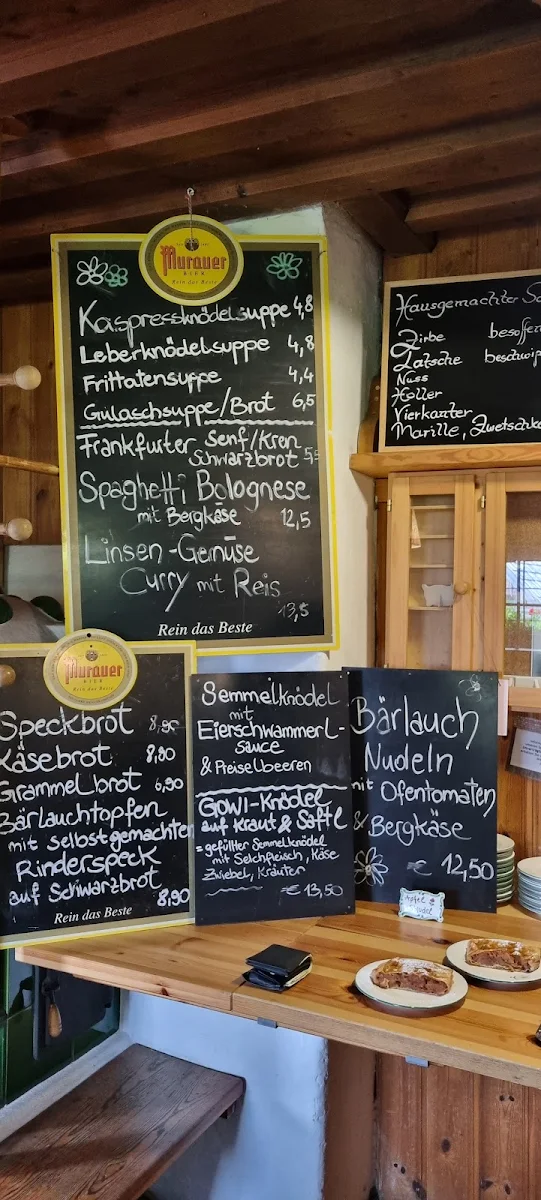 Murauer
BIER
Rein das Beste
Kaspressknödelsuppe 4,8
Leberknödelsuppe 4,8
Frittatensuppe 4,4
Gulaschsuppe/Brot 6,5
Frankfurter Senf/Kren
Schwarzbrot
Spaghetti Bolognese
mit Bergkäse 12,5
Linsen-Gemüse
Curry mit Reis
13,5
Rein das Beste
Hausgemachter
Zirbe
Latsche
Nuss
Holler
Vierkanter
Marille,
Murauer
BIER
Rein das Beste
Speckbrot 8,90
Käsebrot 8,90
Grammelbrot 6,90
Bärlauchtopfen
mit selbstgemachten
Rinderspeck
auf Schwarzbrot 8,90
Rein das Beste
Semmelknödel
mit
Eierschwammerl-
sauce
& Preiselbeeren
GOWI-Knödel
auf Kraut & Saftl
= gefüllter Semmelknödel
mit Selchfleisch, Käse
Zwiebel, Kräuter
€ 13,50
Bärlauch
Nudeln
mit Ofentomaten
& Bergkäse
€ 12,50
Apfel
strudel